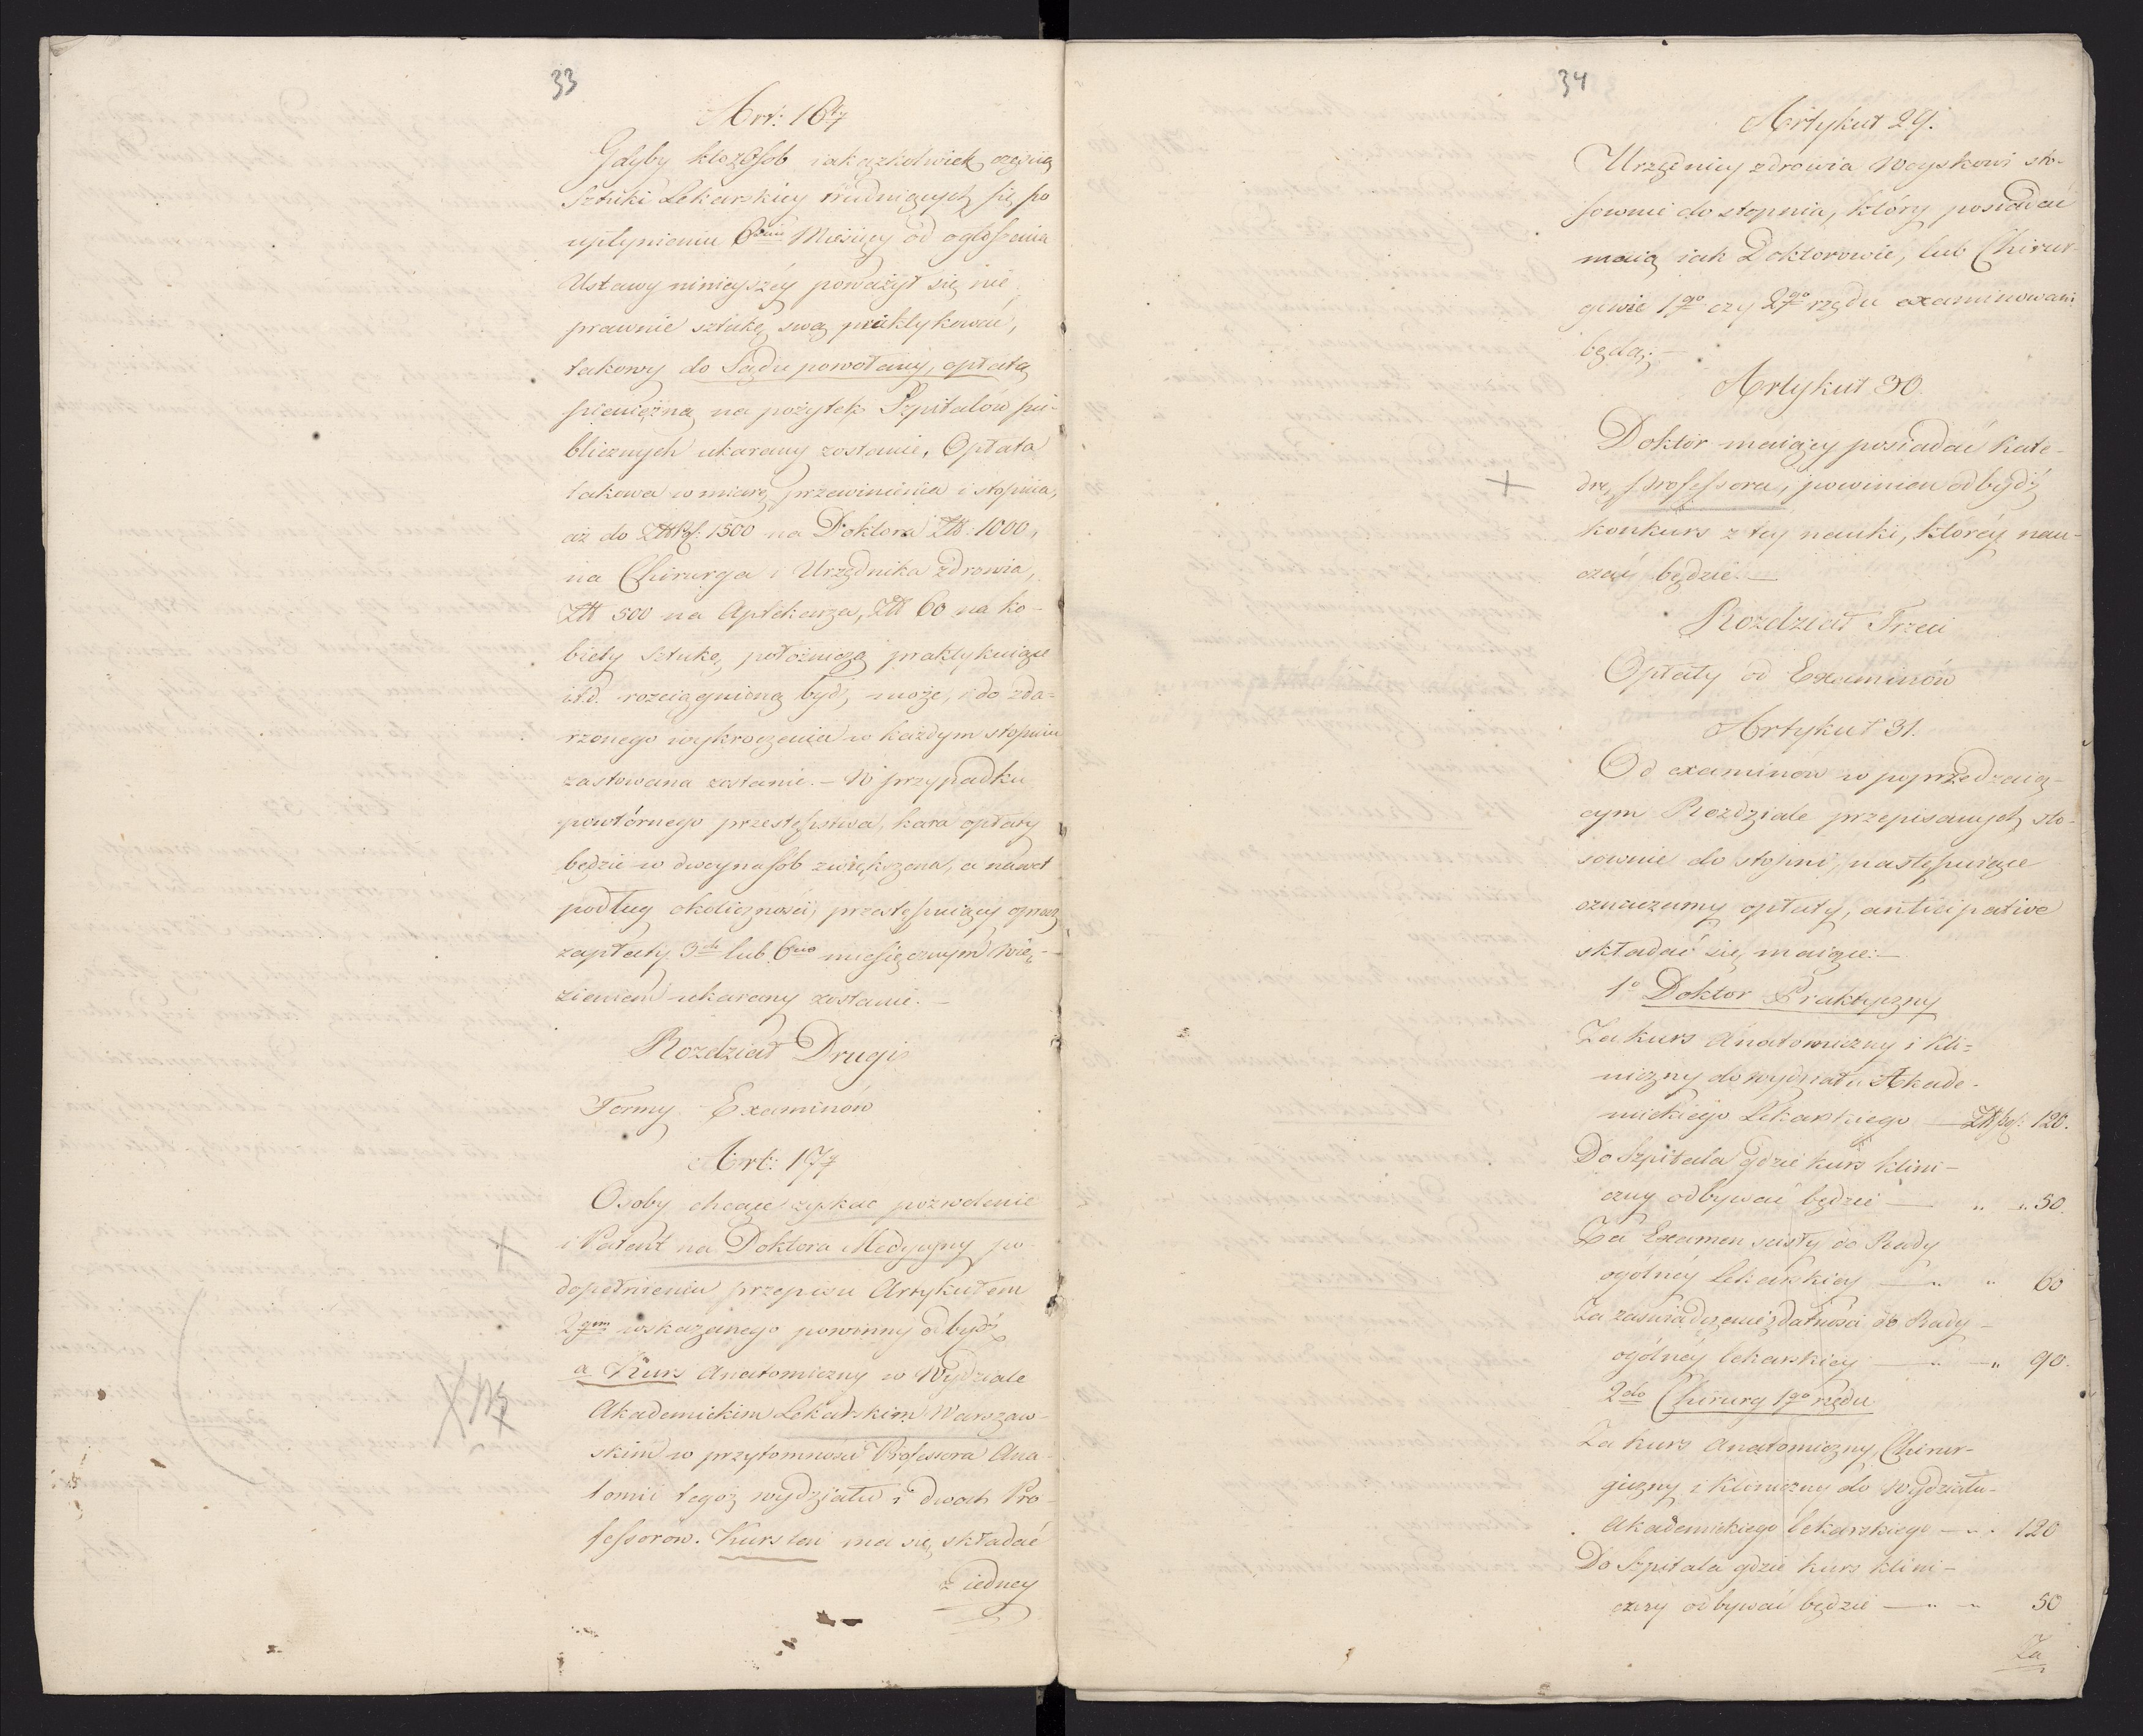 33
Art: 16ty
Gdyby kto z Osob iakążkolwiek częścią
Sztuki Lekarskiey trudniących się po
upłynieniu 6ciu Miesięcy od ogłoszenia
Ustawy ninieyszéy poważył się nie
prawnie sztukę swą praktykować,
takowy do Sądu powołany, opłatą
pieniężną na pożytek Szpitalow pu-
blicznych ukarany zostanie. Opłata
takowa w miarę przewinienia i stopnia,
aż do Złł Pol: 1500 na Doktora Złł. 1000,
na Chirurga i Urzędnika Zdrowia,
Złł 500 na Aptekarza, Złł 60 na ko-
biety Sztukę położniczą praktykuiące
itd. rozciągnioną bydź może, i do zda-
rzonego wykroczenia w każdym stopniu
zastowana zostanie. — W przypadku
powtórnego przestępstwa, kara opłaty
będzie w dwóynasób zwiększona, a nawet
podług okoliczności, przestępuiący oprócz
zapłaty 3ch lub 6cio miesięcznym Wię-
zieniem ukarany zostanie. —
Rozdział Drugi
Formy Examinów
Art: 17ty
Osoby chcące zyskac pozwolenie
i Patent na Doktora Medycyny po
dopełnieniu przepisu Artykułem
2gim wskazanego powinny odbydź
a Kurs Anatomiczny w Wydziale
Akademickim Lekarskim Warszaw-
skim w przytomności Professora Ana-
tomii tegoż wydziału i dwoch Pro-
fessorow. Kurs ten ma się składać
z iedney
34
Artykuł 29.
Urzędnicy zdrowia Woyskowi sto-
sownie do stopnia, który posiadać
maią iak Doktorowie, lub Chirur-
gowie 1go czy 2go rzędu examinowani
będą: —
Artykuł 30.
Doktor maiący posiadać Kate-
drę Professora, powinien odbydź
konkurs z tey nauki, któréy nau-
czać będzie. —
Rozdział Trzeci
Opłaty od Examinów
Artykuł 31.
Od examinow w poprzedzaią-
cym Rozdziale przepisanych sto-
sownie do stopni, następuiące
oznaczamy opłaty, anticipative
składać się maiące: —
1o Doktor Praktyczny
Za kurs Anatomiczny i Kli-
niczny do wydziału Akade-
mickiego Lekarskiego — Złł pol: 120.
Do Szpitala gdzie kurs klini-
czny odbywać będzie — „ „ 50.
Za Examen ścisły do Rady
ogólnéy lekarskiey — „ „ 60
Za zaświadczenie zdatności do Rady
ogólnéy lekarskiey — „ — „ 90.
2do Chirurg 1go rzędu
Za kurs Anatomiczny, Chirur-
giczny i Kliniczny do Wydziału
Akademickiego lekarskiego — „ „ 120
Do Szpitala gdzie kurs klini-
czny odbywać będzie — „ — „ 50
Za